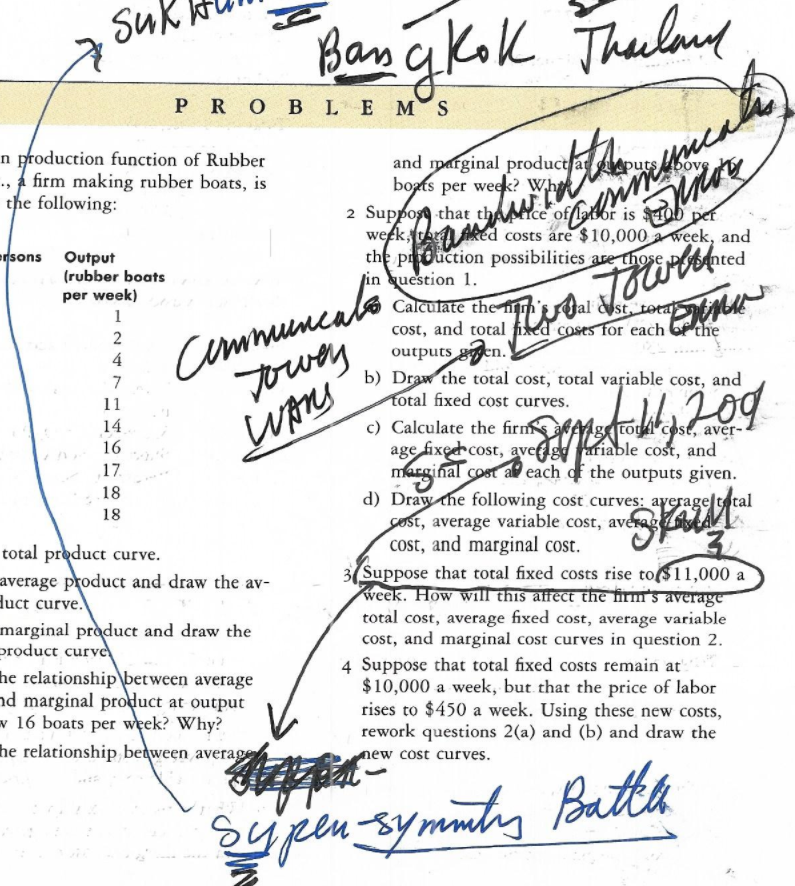 Bangkok Thailand
PROBLEMS
n production function of Rubber
., a firm making rubber boats, is
the following:
rsons Output
(rubber boats
per week)
1
2
4
7
11
14
16
17
18
18
total product curve.
average product and draw the av-
duct curve.
marginal product and draw the
product curve.
he relationship between average
nd marginal product at output
w 16 boats per week? Why?
he relationship between average
and marginal product at outputs above
boats per week? Why
2 Suppose that the price of labor is $400 per
week, total fixed costs are $10,000 a week, and
the production possibilities are those presented
in question 1.
Calculate the firm's total cost, total variable
cost, and total fixed costs for each of the
outputs given.
b) Draw the total cost, total variable cost, and
total fixed cost curves.
c) Calculate the firm's average total cost, aver-
age fixed cost, average variable cost, and
marginal cost at each of the outputs given.
d) Draw the following cost curves: average total
cost, average variable cost, average fixed
cost, and marginal cost.
3 Suppose that total fixed costs rise to $11,000 a
week. How will this affect the firm's average
total cost, average fixed cost, average variable
cost, and marginal cost curves in question 2.
4 Suppose that total fixed costs remain at
$10,000 a week, but that the price of labor
rises to $450 a week. Using these new costs,
rework questions 2(a) and (b) and draw the
new cost curves.
Bandwidth
Two Towers
Towers
Sept 11, 2001
Skull
3